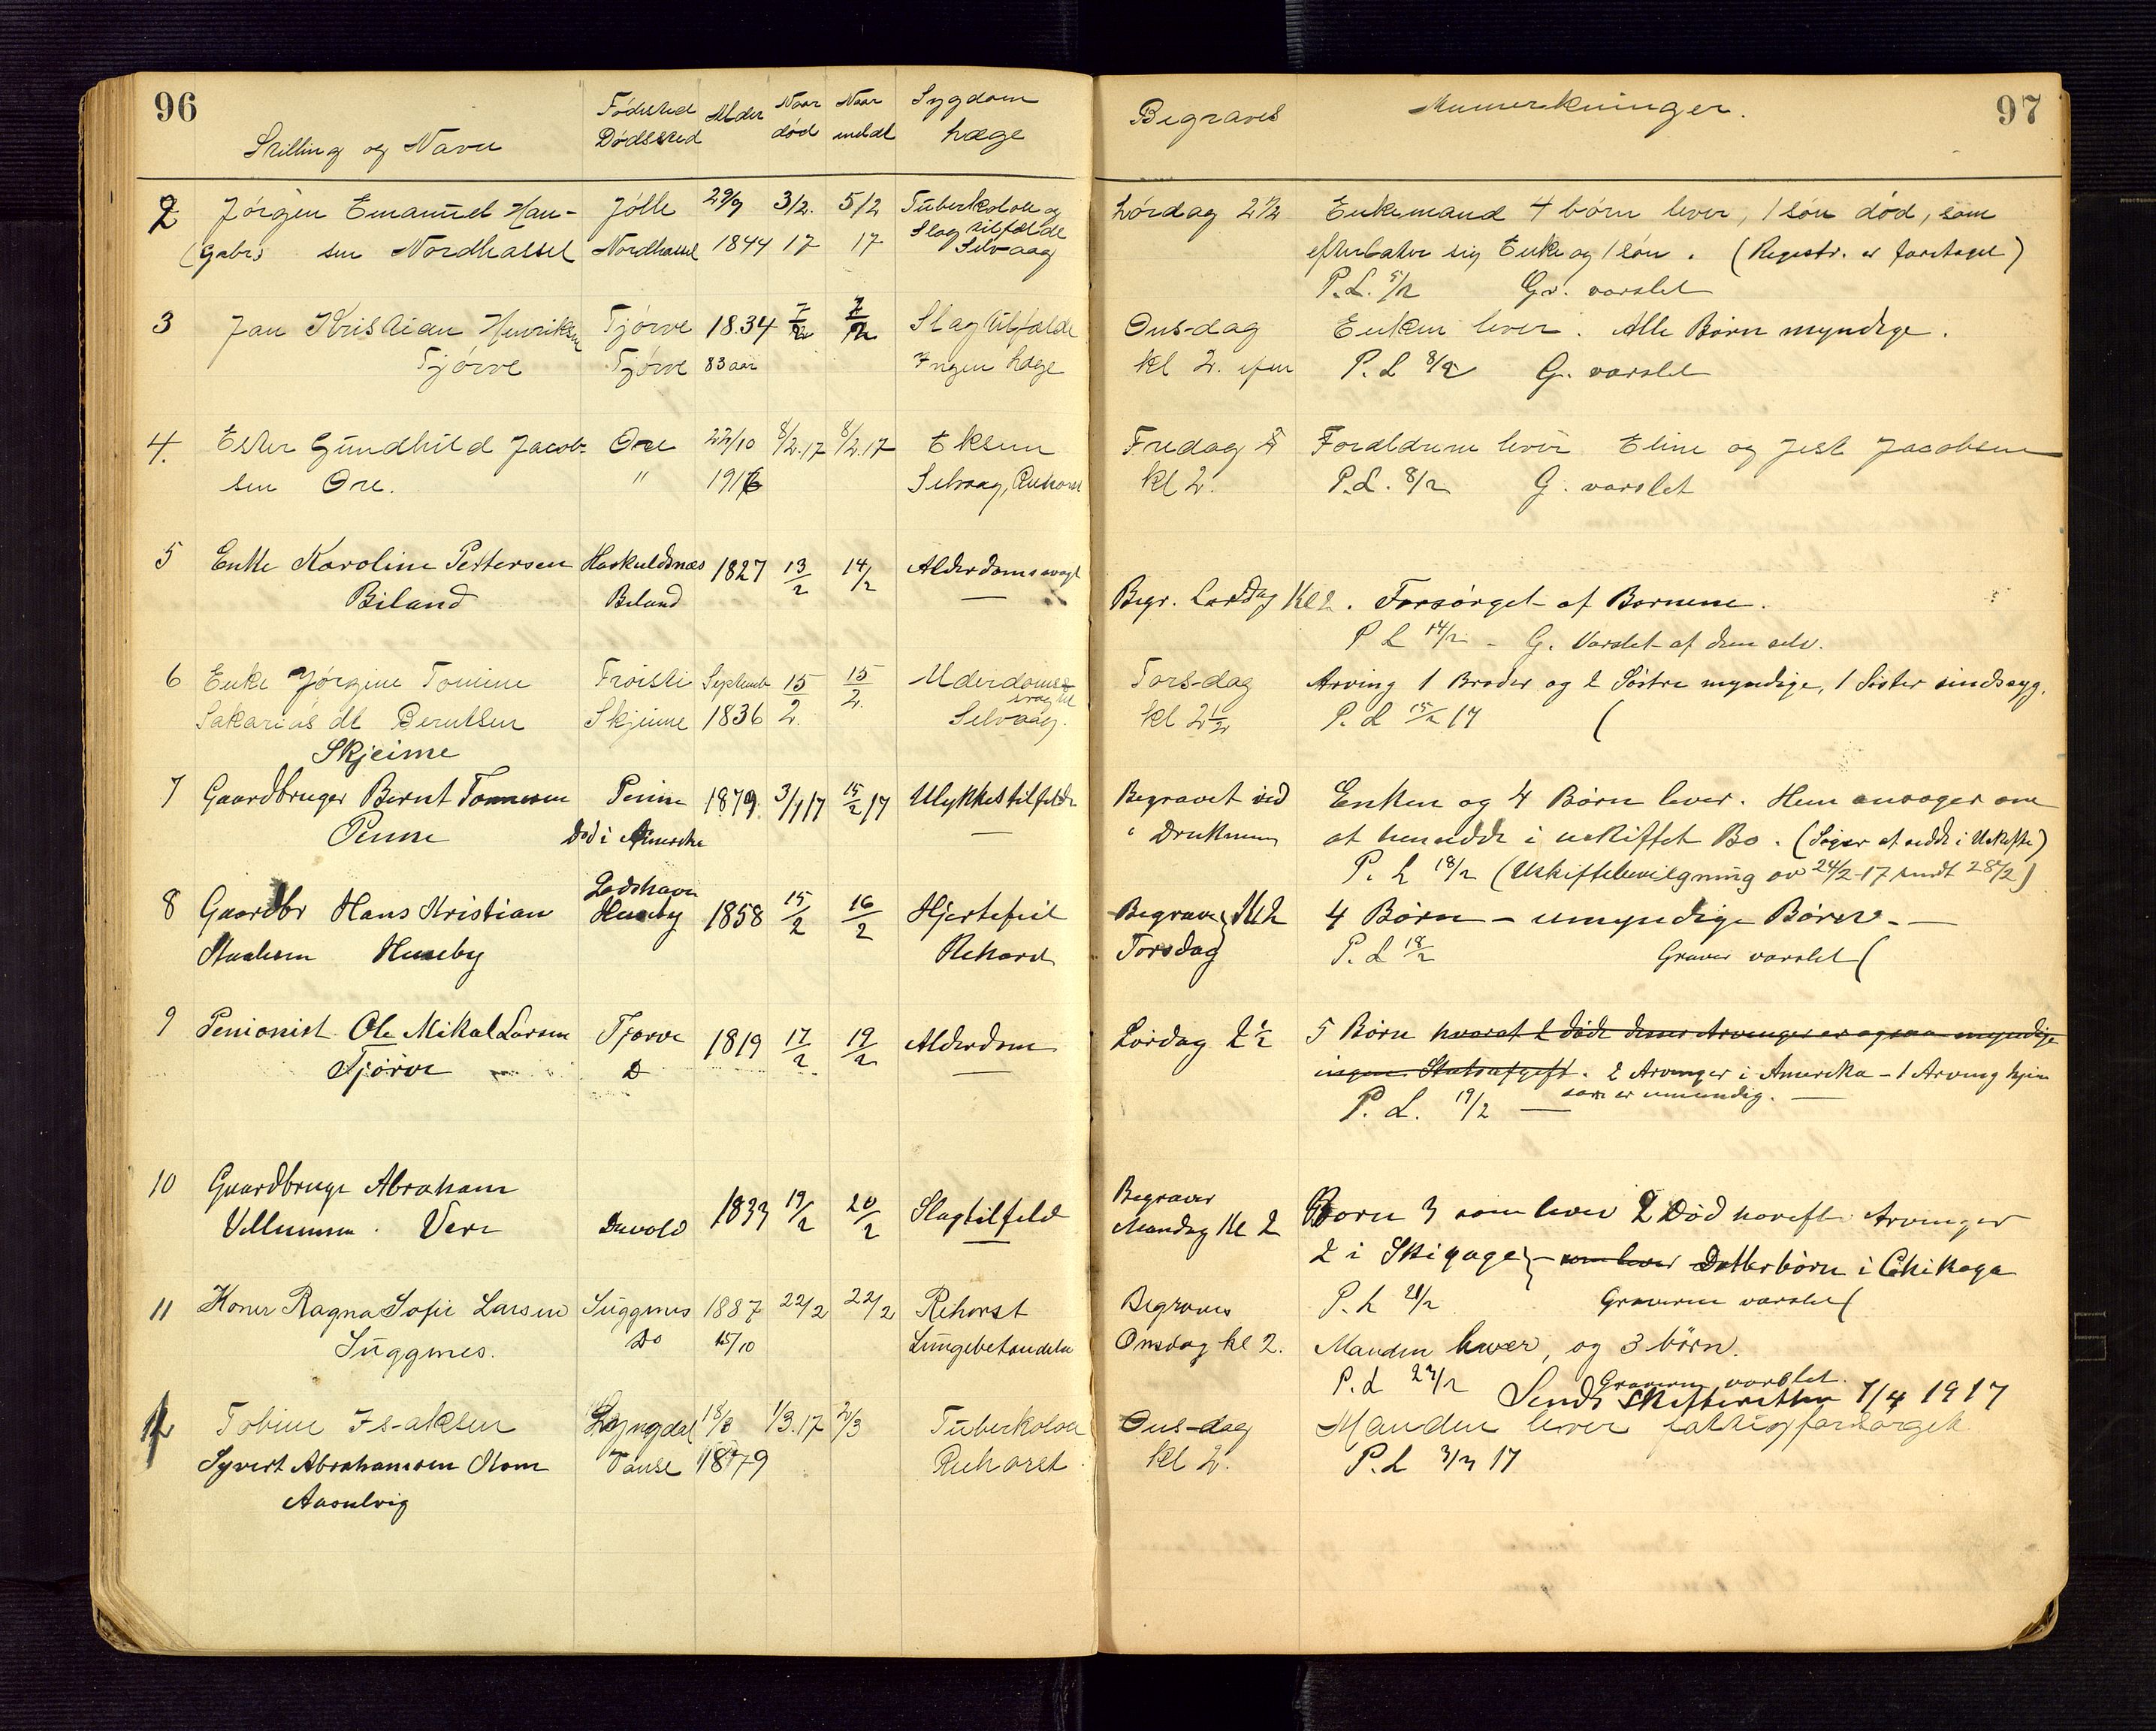 96
Stilling og Navn
Fødested Dødssted
Alder
Naar død
Naar meldt
Sygdom Læge
Begraves
Anmerkninger.
97
2 Jørgen Emanuel Han- Jølle 29/9 3/2. 5/2 Tuberkolose og Lørdag 2½ Enkemand 4 børn lever, 1 søn død, som
(Gabr) sen Nordhassel Nordhassel 1844 17 17 Slagtilfælde Selvaag efterlater sig Enke og 1 søn. (Registr. er foretaget)
P.L. 5/2 Gr. varslet
3 Jan Kristian Henriksen Tjørve 1834 7/2 7/2 Slagtilfælde Onsdag Enken lever. Alle Børn myndige.
Tjørve Tjørve 83 aar Ingen Læge kl 2. P.L 8/2 G. varslet
4. Ester Gundhild Jacob- Ore 22/10 8/2.17 8/2.17 Eksem Fredag Forældrene lever Eline og Jest Jacobsen
sen Ore. " 1916 Selvaag, kl 2. P.L. 8/2 G. varslet
5 Enke Karoline Pettersen Haskuldsnæs 1827 13/2 14/2 Alderdomssvagh
Biland Biland — Begr. Lørdag Kl 2. Forsørget af Børnene.
P L 14/2 - G. Varslet af dem selv.
6 Enke Jørgine Tomine Septemb 15/2 15/2 Alderdoms- Torsdag Arving 1 Broder og 2 Søstre myndige, 1 Søster sindssyg.
Sakarias dt Berntsen Skjeime 1836 Selvaag. kl 2½ P. L 15/2 17 (
Skjeime
7 Gaardbruger Bernt Tønnesen Penne 1879 3/1 17 15/2 17 Ulykkestilfelde Begravet ved Enken og 4 Børn lever. Hun ansøger om
Penne Død i Amerika — at hensidde i uskiftet Bo. (Søger at sidde i Uskifte)
P. L 18/2 (Uskiftebevilgning av 24/2-17 sendt 28/2)
8 Gaardbr Hans Kristian Huseby 1858 15/2 16/2 Hjertefeil Begraves Kl 2 4 Børn - umyndige Børn. —
Huseby Torsdag P. L 18/2 Graver varslet (
9 Pensionist Ole Mikal Larsen Tjørve 1819 17/2 19/2 Alderdom Lørdag 2½ 5 Børn hvoraf 2 døde deres Arvinger er ogsaa myndige
Tjørve D — ingen Statsafgift. 2 Arvinger i Amerika - 1 Arving hjem
som er umundig. —
P. L. 19/2 —
10 Gaardbruge Abraham Begraves
Vere 1833 19/2 20/2 Slagtilfeld Mandag Kl 2 Børn 3 som lever 2 Død Arvinger
2 i Skigago - som lever Datterbørn i Chikago
P. L 20/2 Graveren varslet (
11 Koner Ragna Sofie Larsen 1887 22/2 22/2 Rehorst Begraves
Do 15/10 Lungebetændelse Onsdag kl 2. Manden lever, og 3 børn.
P. L Graveren varslet.
Sendt Skifteretten 7/4 1917
12 Tobine Is-aksen Lyngdal 18/8 1/3.17 2/3 Tuberkolose Ons-dag Manden lever fattigforsørget
Syvert Abrahamsen Kone Vanse 1879 Rehorst kl 2. P. L 3/3 17
Aasulvig